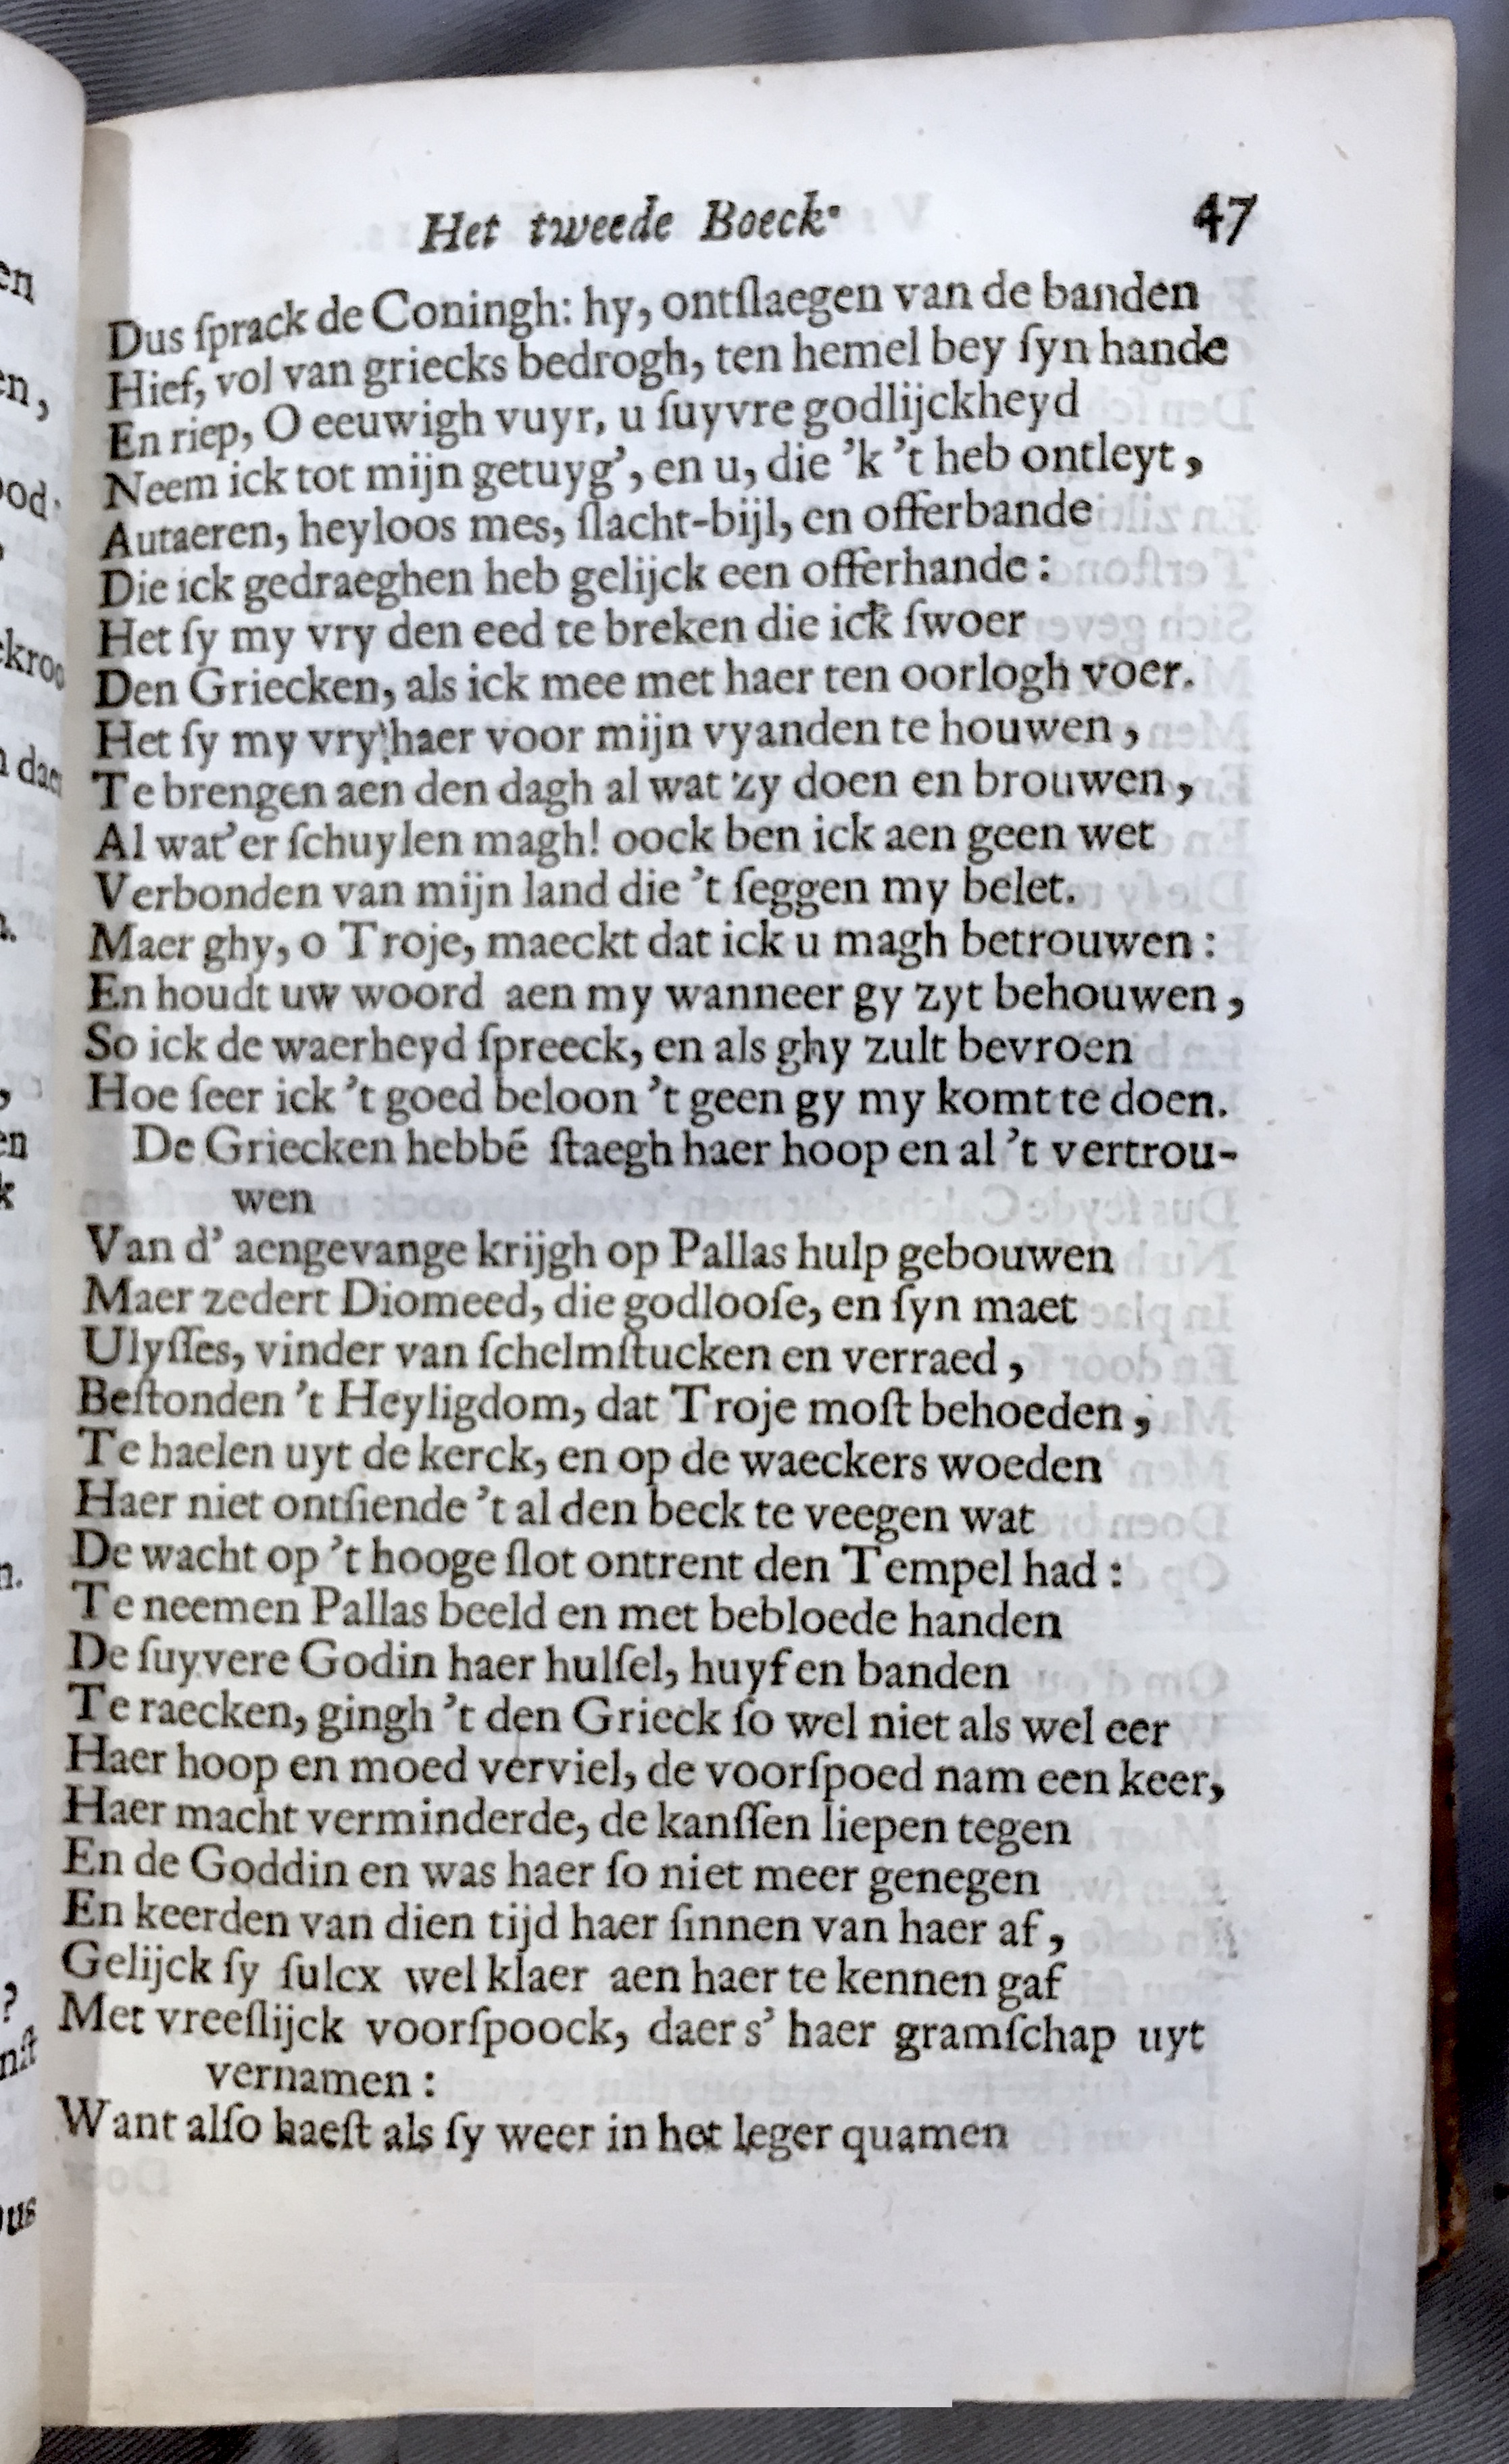 Het tweede Boeck. 47
Dus ſprack de Coningh: hy, ontſlaegen van de banden
Hief, vol van griecks bedrogh, ten hemel bey ſyn hande
En riep, O eeuwigh vuyr, u ſuyvre godlijckheyd
Neem ick tot mijn getuyg’, en u, die ’k ’t heb ontleyt,
Autaeren, heyloos mes, ſlacht-bijl, en offerbande
Die ick gedraeghen heb gelijck een offerhande:
Het ſy my vry den eed te breken die ick ſwoer
Den Griecken, als ick mee met haer ten oorlogh voer.
Het ſy my vry haer voor mijn vyanden te houwen,
Te brengen aen den dagh al wat zy doen en brouwen,
Al wat’er ſchuylen magh! oock ben ick aen geen wet
Verbonden van mijn land die ’t ſeggen my belet.
Maer ghy, o Troje, maeckt dat ick u magh betrouwen:
En houdt uw woord aen my wanneer gy zyt behouwen,
So ick de waerheyd ſpreeck, en als ghy zult bevroen
Hoe ſeer ick ’t goed beloon ’t geen gy my komt te doen.
De Griecken hebbé ſtaegh haer hoop en al ’t vertrou-
wen
Van d’ aengevange krijgh op Pallas hulp gebouwen
Maer zedert Diomeed, die godlooſe, en ſyn maet
Ulyſſes, vinder van ſchelmſtucken en verraed,
Beſtonden ’t Heyligdom, dat Troje moſt behoeden,
Te haelen uyt de kerck, en op de waeckers woeden
Haer niet ontſiende ’t al den beck te veegen wat
De wacht op ’t hooge ſlot ontrent den Tempel had:
Te neemen Pallas beeld en met bebloede handen
De ſuyvere Godin haer hulſel, huyf en banden
Te raecken, gingh ’t den Grieck ſo wel niet als wel eer
Haer hoop en moed verviel, de voorſpoed nam een keer,
Haer macht verminderde, de kanſſen liepen tegen
En de Goddin en was haer ſo niet meer genegen
En keerden van dien tijd haer ſinnen van haer af,
Gelijck ſy ſulcx wel klaer aen haer te kennen gaf
Met vreeſlijck voorſpoock, daer s’ haer gramſchap uyt
vernamen:
Want alſo haeſt als ſy weer in het leger quamen